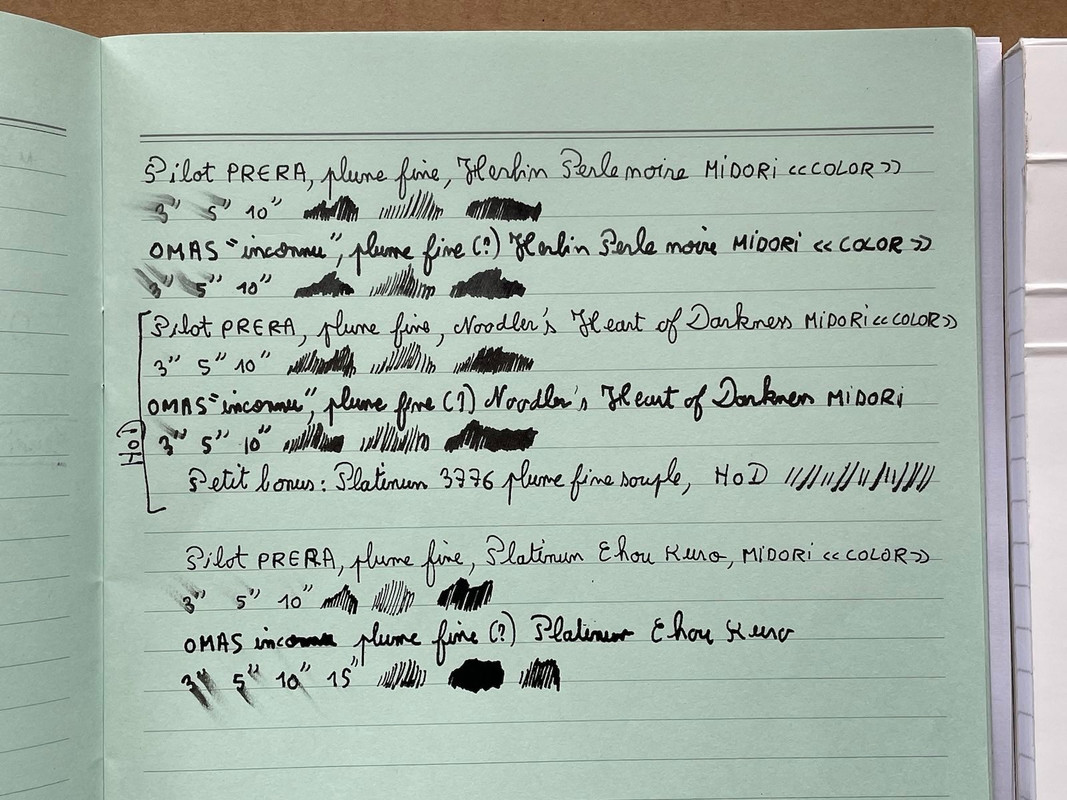 Pilot PRERA, plume fine, Herbin Perle noire MIDORI <<COLOR>>
3" 5" 10"
OMAS "inconnu", plume fine (?) Herbin Perle noire MIDORI <<COLOR>>
3" 5" 10"
Pilot PRERA, plume fine, Noodler's Heart of Darkness MIDORI <<COLOR>>
3" 5" 10"
OMAS "inconnu", plume fine (?) Noodler's Heart of Darkness MIDORI
3" 5" 10"
HoD
Petit bonus: Platinum 3776 plume fine souple, HoD
Pilot PRERA, plume fine, Platinum Chou Kuro, MIDORI <<COLOR>>
3" 5" 10"
OMAS inconnu plume fine (?) Platinum Chou Kuro
3" 5" 10" 15"